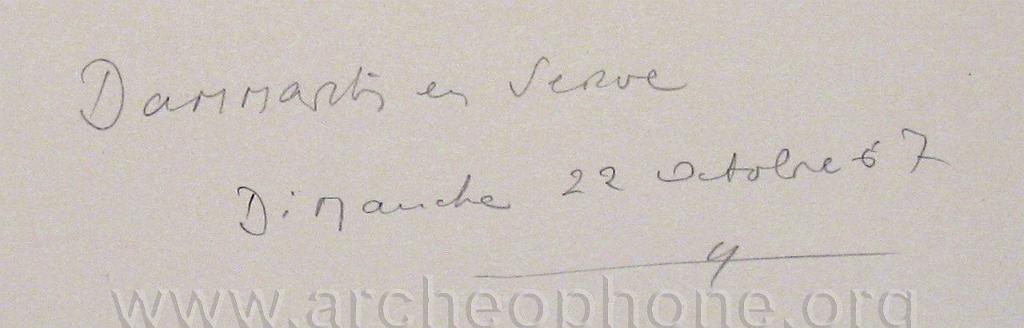 Dammartin en Serve
Dimanche 22 octobre 67
www.archeophone.org